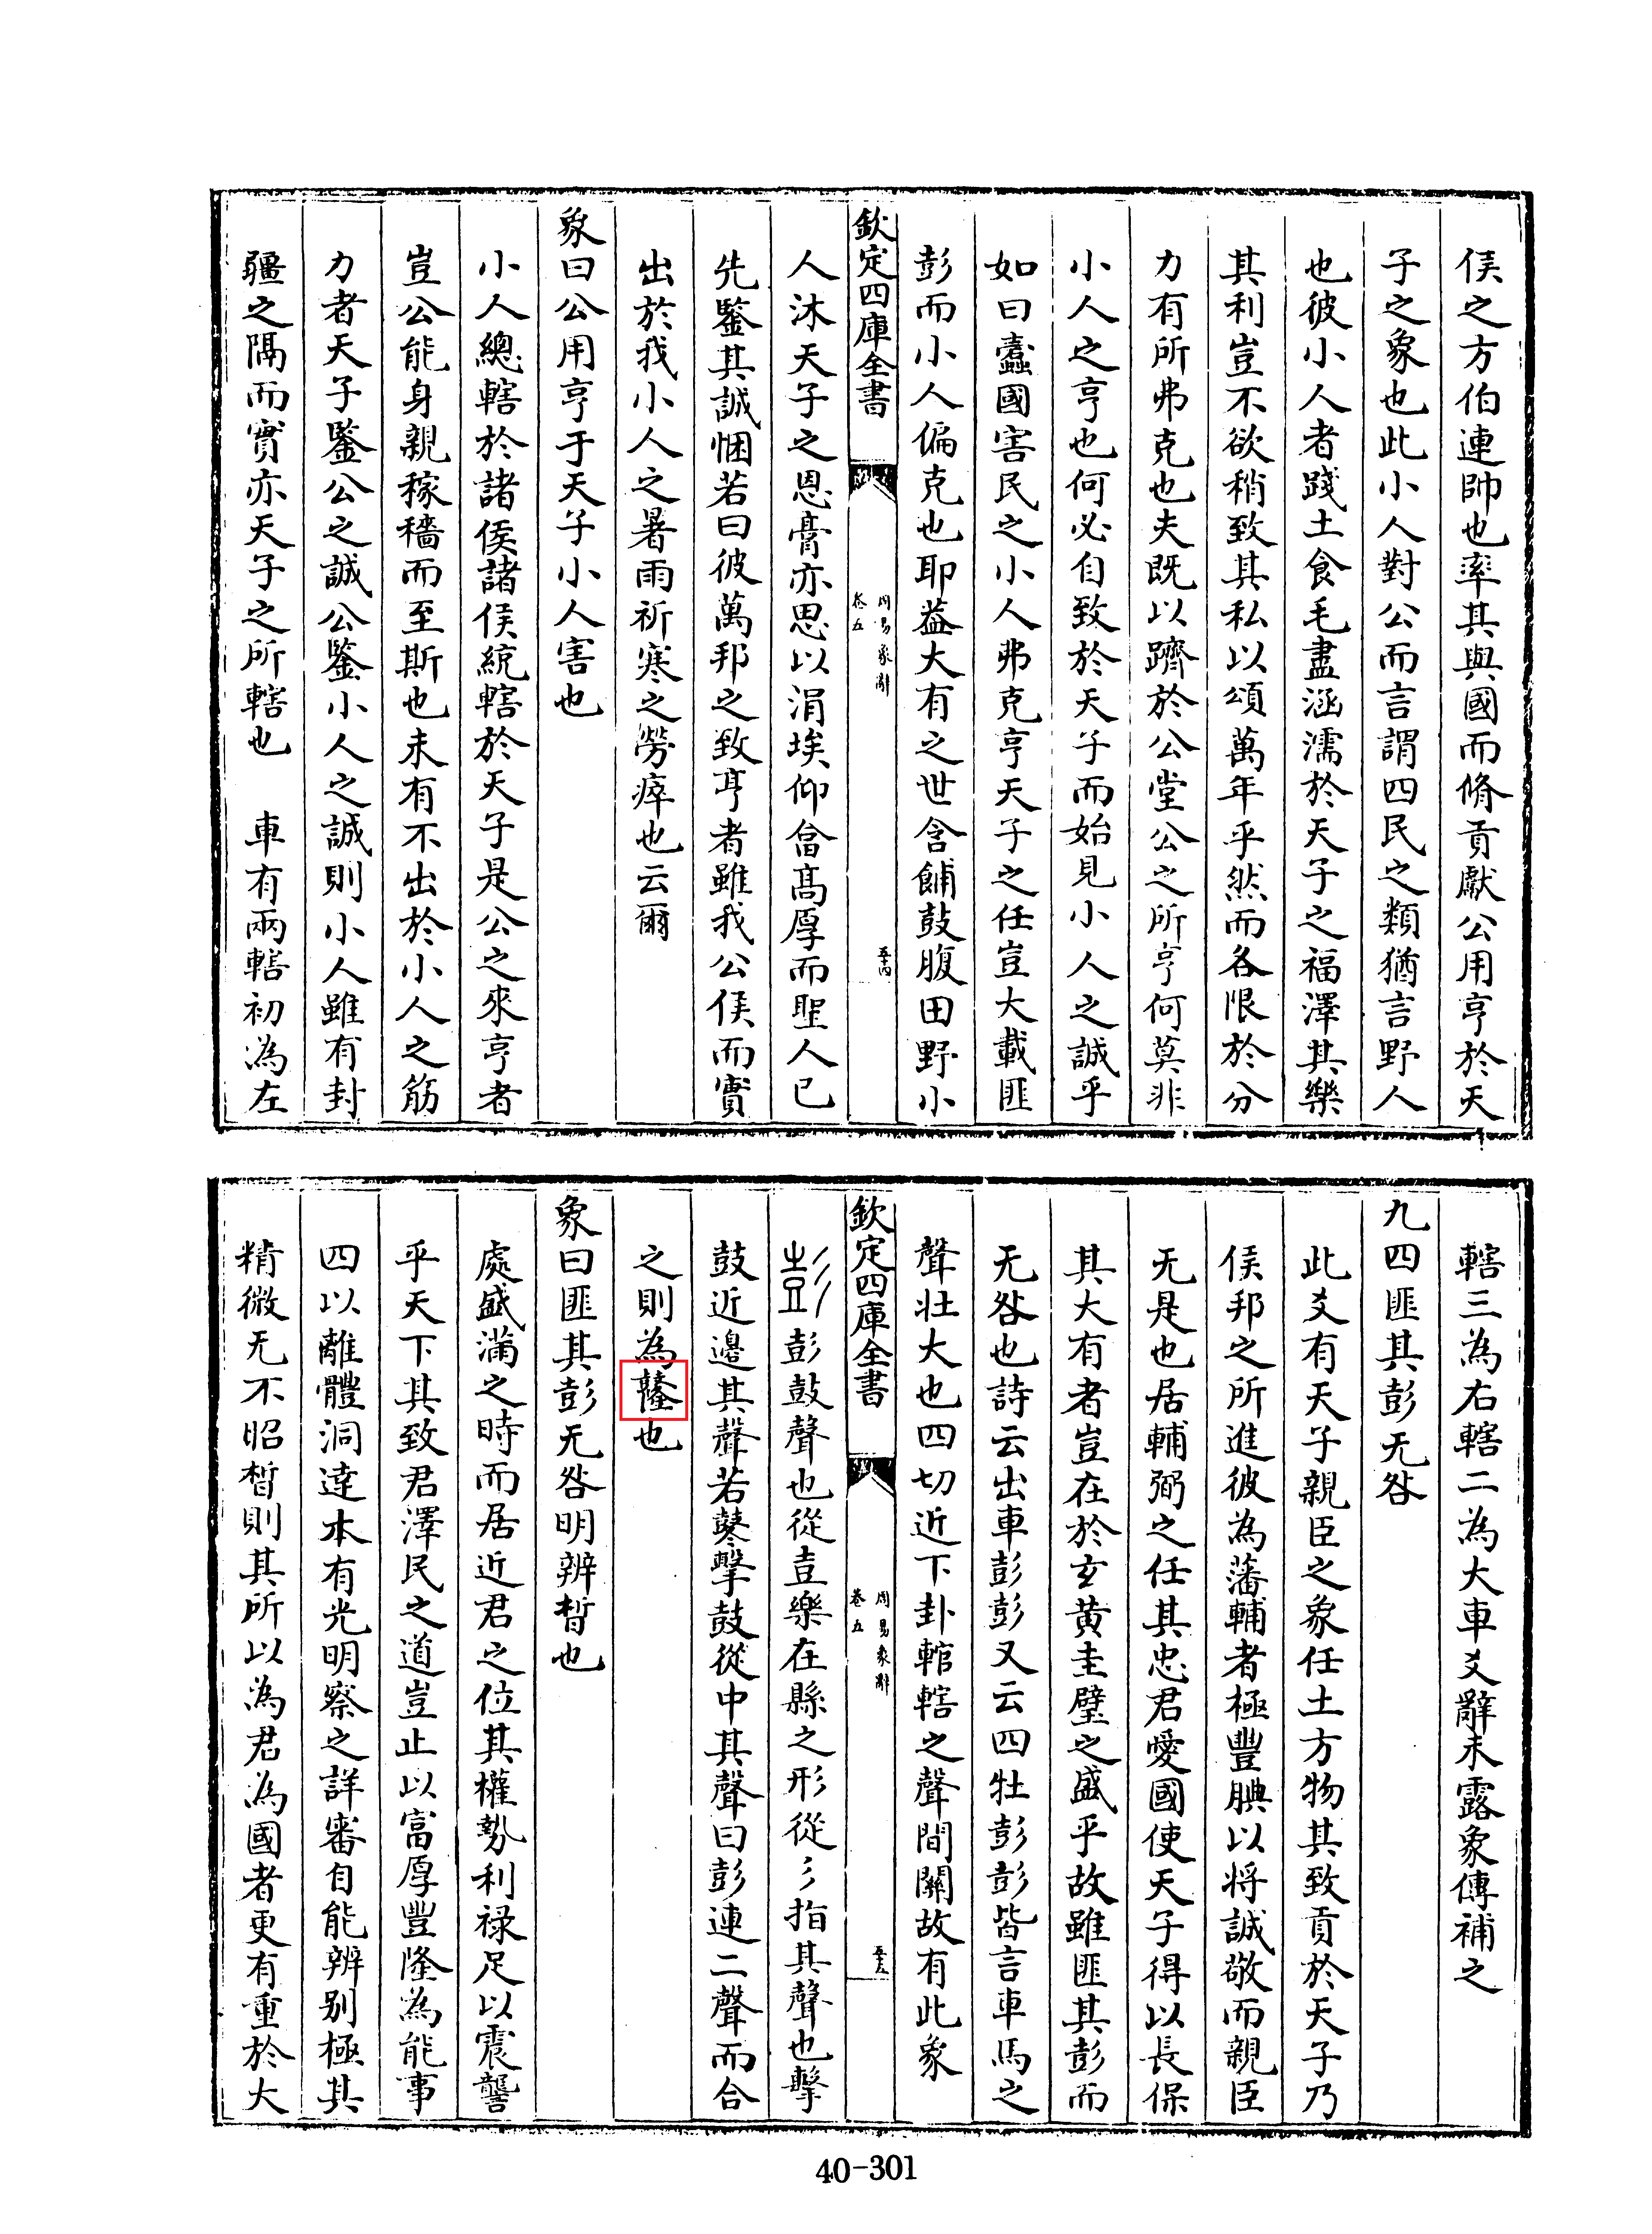 侯之方伯連帥也率其與國而脩貢獻公用亨於天
子之象也此小人對公而言謂四民之類猶言野人
也彼小人者踐土食毛盡涵濡於天子之福澤其樂
其利豈不欲稍致其私以頌萬年乎然而各限於分
力有所弗克也夫既以躋於公堂公之所亨何莫非
小人之亨也何必自致於天子而始見小人之誠乎
如曰蠹國害民之小人弗克亨天子之任豈大載匪
彭而小人偏克也耶葢大有之世含餔鼓腹田野小
欽定四庫全書
周易象辭
卷五
五十四
人沐天子之恩膏亦思以涓埃仰畣髙厚而聖人已
先鑒其誠悃若曰彼萬邦之致亨者雖我公侯而實
出於我小人之暑雨祈寒之勞瘁也云爾
象曰公用亨于天子小人害也
小人總轄於諸侯諸侯統轄於天子是公之來亨者
豈公能身親稼穡而至斯也未有不出於小人之筋
力者天子鑒公之誠公鑒小人之誠則小人雖有封
疆之隔而實亦天子之所轄也 車有兩轄初為左
轄三為右轄二為大車爻辭未露象傳補之
九四匪其彭无咎
此爻有天子親臣之象任土方物其致貢於天子乃
侯邦之所進彼為藩輔者極豐腆以将誠敬而親臣
无是也居輔弼之任其忠君愛國使天子得以長保
其大有者豈在於玄黃圭璧之盛乎故雖匪其彭而
无咎也詩云出車彭彭又云四牡彭彭皆言車馬之
聲壮大也四切近下卦輨轄之聲間關故有此象
欽定四庫全書
周易象辭
卷五
五十五
彭彭鼓聲也從壴樂在縣之形從彡指其聲也擊
鼓近邊其聲若鼕擊鼓從中其聲曰彭連二聲而合
之則為韼也
象曰匪其彭无咎明辨晳也
處盛滿之時而居近君之位其權勢利禄足以震讋
乎天下其致君澤民之道豈止以富厚豐隆為能事
四以離體洞達本有光明察之詳審自能辨别極其
精微无不昭晳則其所以為君為國者更有重於大
40-301